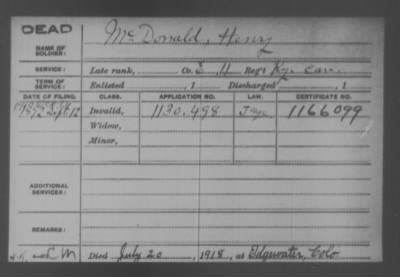 DEAD
NAME OF SOLDIER: McDonald, Henry
SERVICE: Late rank, Co. E 11 Reg't Ky. Cav.
TERM OF SERVICE: Enlisted , 1 Discharged , 1
DATE OF FILING. CLASS. APPLICATION NO. LAW. CERTIFICATE NO.
Invalid, 1130.498 1166099
Widow,
Minor,
ADDITIONAL SERVICES:
REMARKS:
Died July 20, 1918, at Edgewater, Colo